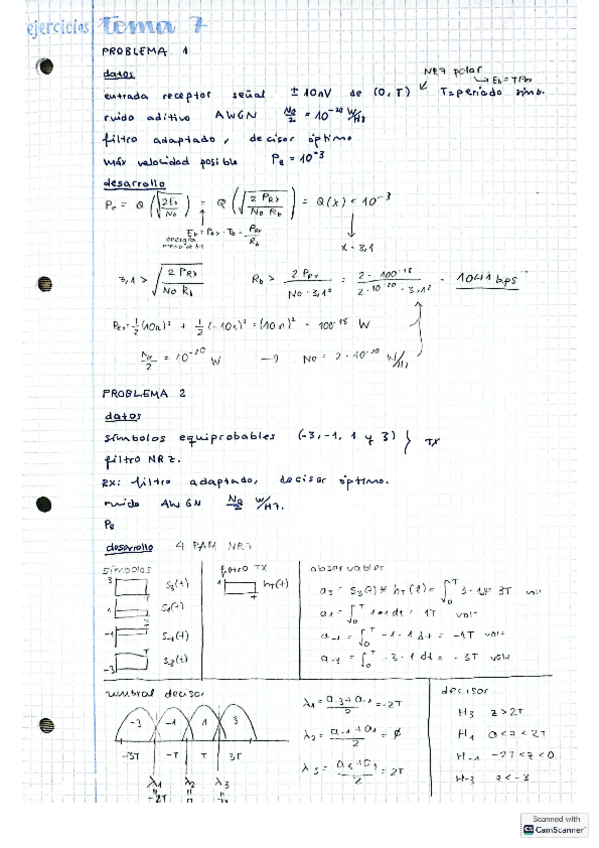 ejercicios tema 7
PROBLEMA 1
datos
NRZ polar
entrada receptor señal ± 10nV de (0, T)
ruido aditivo AWGN No/2 = 10^-20 W/Hz
filtro adaptado, decisor óptimo
máx velocidad posible Pe = 10^-3
desarrollo
Pe = Q (√(2Eb/No)) = Q (√(2 PRx/(No Rb))) = Q(x) < 10^-3
x = 3,1
3,1 > √(2 PRx/(No Rb)) Rb > 2 PRx/(No · 3,1²) = 2 · 100^-18/(2 · 10^-20 · 3,1²) = 1041 bps
PRx = 1/2 (10n)² + 1/2 (-10n)² = (10n)² = 100^-18 W
No/2 = 10^-20 W → No = 2 · 10^-20 W/Hz
PROBLEMA 2
datos
símbolos equiprobables (-3, -1, 1 y 3) } TX
filtro NRZ.
RX: filtro adaptado, decisor óptimo.
ruido AWGN No/2 W/Hz.
Pe
desarrollo 4 PAM NRZ
símbolos
3 S3(t)
1 S1(t)
-1 S-1(t)
-3 S-3(t)
filtro TX
1 hT(t)
T
observables
a3 = S3(t) * hT(t) = ∫0^T 3 · 1 dt = 3T volt
a1 = ∫0^T 1·1 dt = 1T volt
a-1 = ∫0^T -1 · 1 dt = -1T volt
a-3 = ∫0^T -3 · 1 dt = -3T volt
umbral decisor
-3 -1 1 3
-3T -T T 3T
λ1 λ2 λ3
-2T
λ1 = = -2T
λ2 = (a-1 + a1)/2 = ϕ
λ3 = = 2T
decisor
H3 z > 2T
H1 0 < z < 2T
H-1 -2T < z < 0
H-3
Scanned with
CamScanner